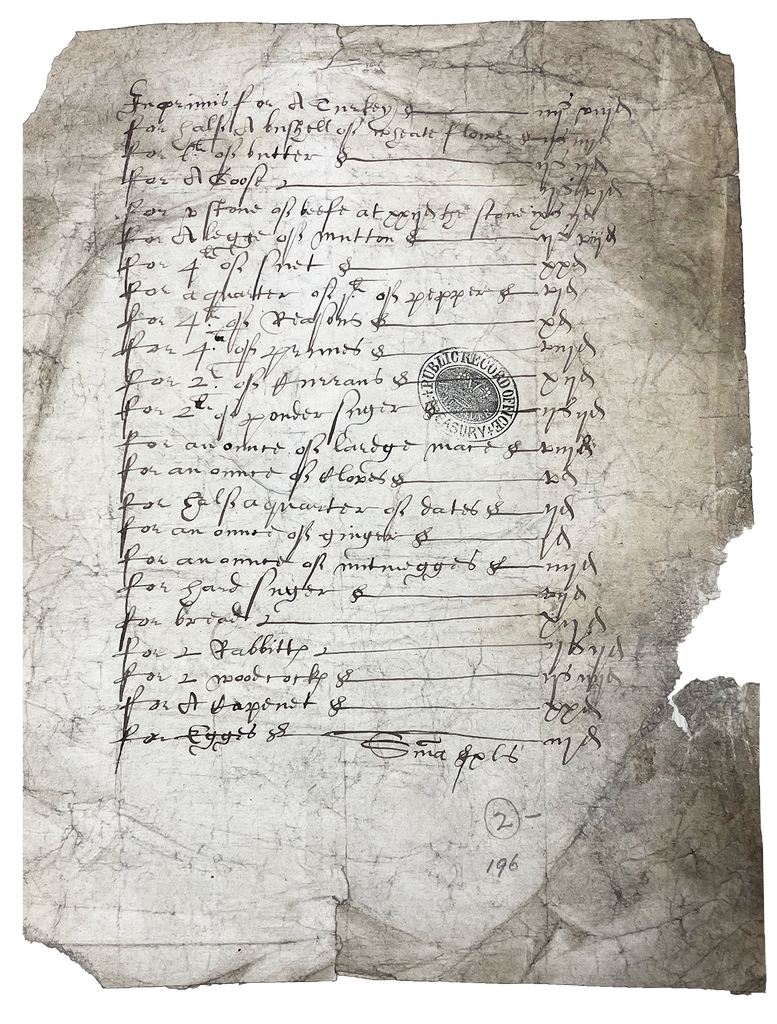 Inprimis for A Turkey iiijs viijd
for halfe A bushell of wheate flower
for of butter ijs
for A Goose ijs
for v stone of beefe at xxijd the stone ixs ijd
for A legge of mutton ijs viijd
for 4li of suet xxd
for a quarter of jli of pepper vjd
for 4li of Reasons xd
for 4li of prunes viijd
for 2li of Currans xijd
for 2li of ponder suger ijs ijd
for an ounce of lardge mace viijd
for an ounce of Cloves vd
for halfe a quarter of dates ijd
for an ounce of ginger jd
for an ounce of nutmegges iiijd
for hard suger vijd
for bread xijd
for 2 Rabbitts ijs ijd
for 2 woodcocks ijs
for A Caponet xxd
for Egges iijd
Sma xls
PUBLIC RECORD OFFICE
TREASURY
2 -
196